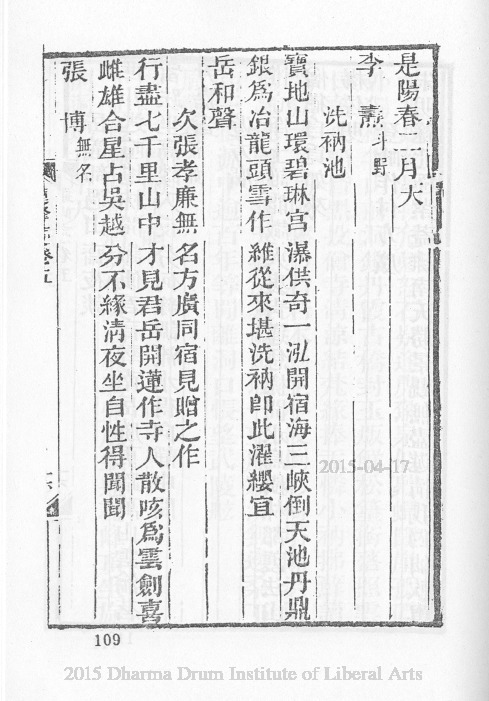 是陽春二月天
李 燾 斗野
洗衲池
寶地山環碧琳宮瀑供奇一泓開宿海三峽倒天池丹鼎
銀爲冶龍頭雪作維從來堪洗衲卽此濯纓宜
岳和聲
次張孝廉無名方廣同宿見贈之作
行盡七千里山中才見君岳開蓮作寺人散咳爲雲劍喜
雌雄合星占吳越分不緣淸夜坐自性得聞聞
張 博 無名
卷五
109
2015-04-17
2015 Dharma Drum Institute of Liberal Arts